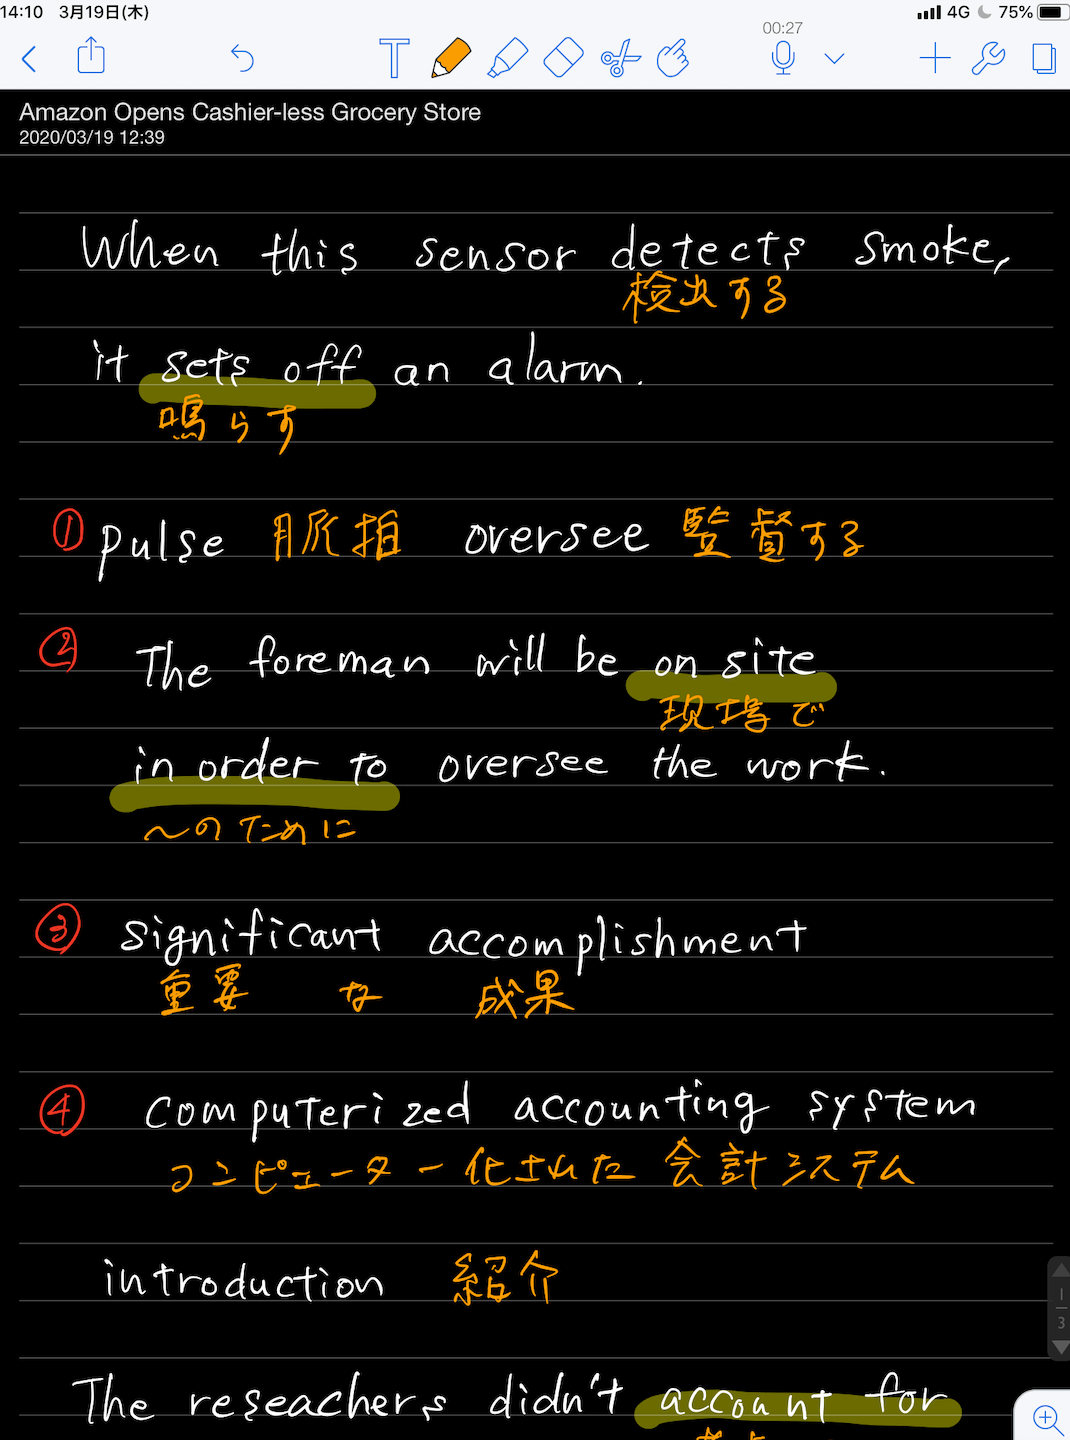 14:10 3月19日(木) 4G 75%
00:27
Amazon Opens Cashier-less Grocery Store
2020/03/19 12:39
When this sensor detects smoke,
検出する
it sets off an alarm.
鳴らす
① pulse 脈拍 oversee 監督する
② The foreman will be on site
現場で
in order to oversee the work.
〜のために
③ significant accomplishment
重要な 成果
④ computerized accounting system
コンピューター化された 会計システム
introduction 紹介
1
3
The reseachers didn't account for